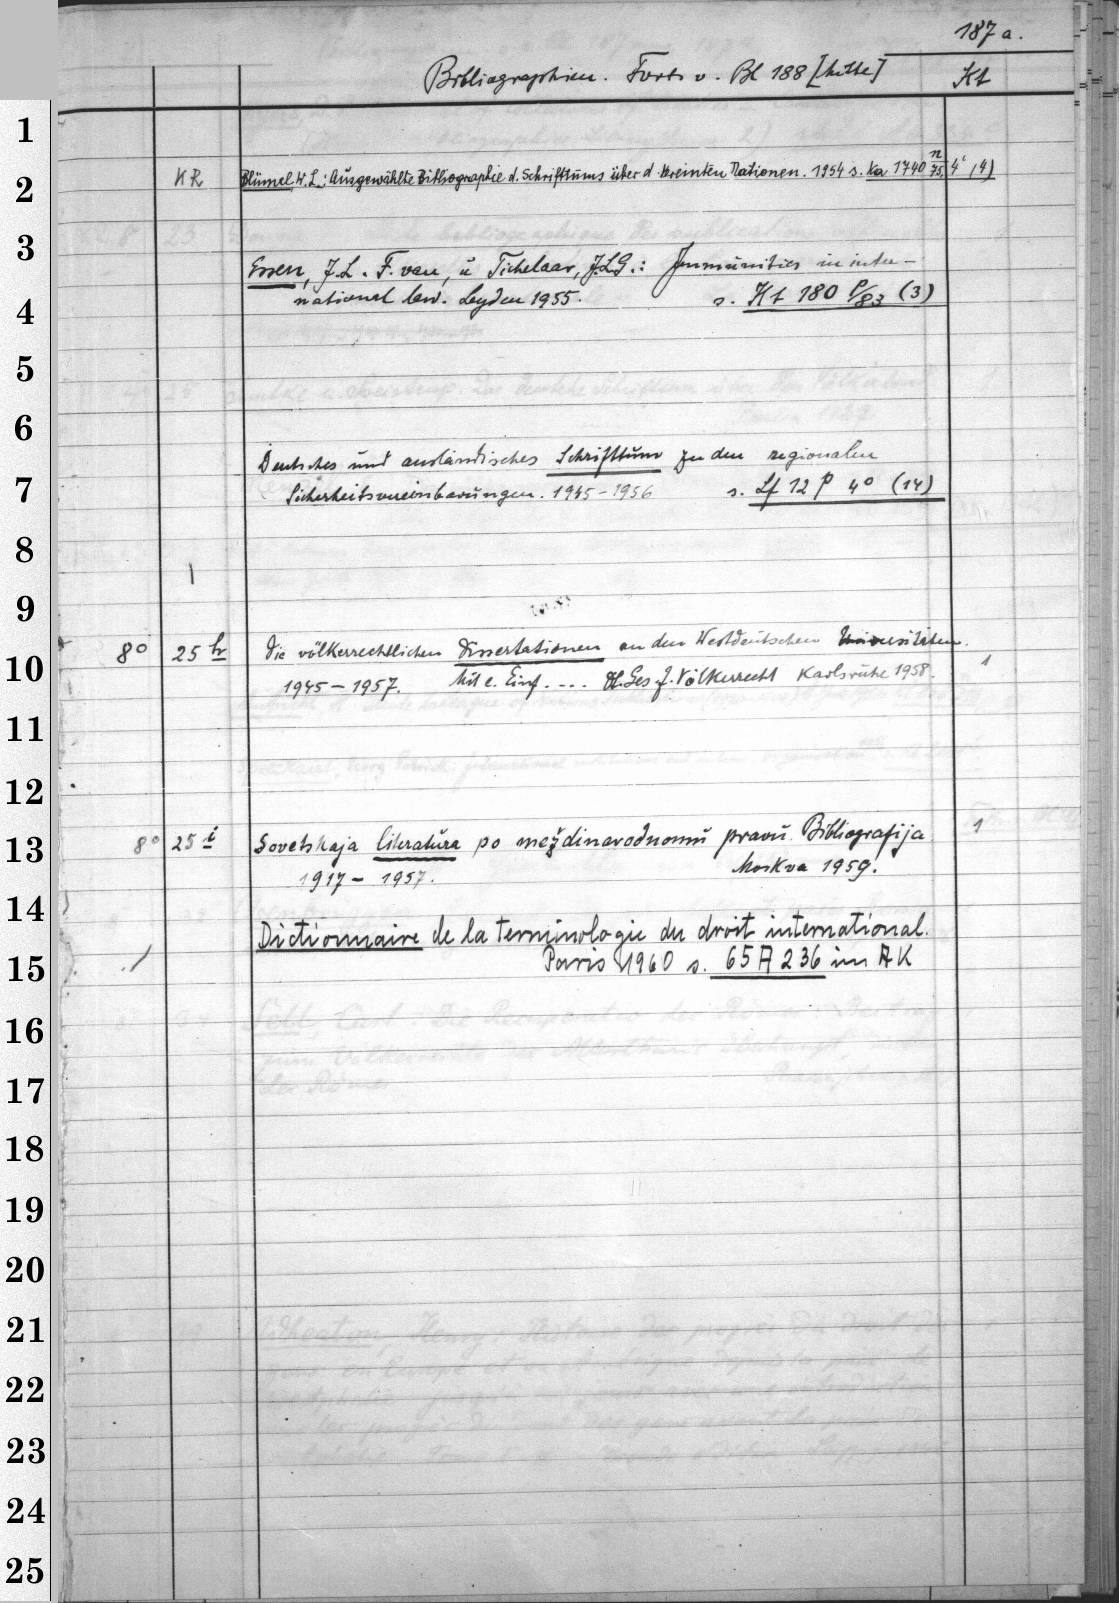 187 a.
Bibliographien. Forts v. Bl 188 [Mitte]
Kt
1
KR Blümel, W. L.: Ausgewählte Bibliographie d. Schrifttums über d. Vereinten Nationen. 1954 s. Ka 1740 n/75, 4° (4)
2
3
Essen, J. L. F. van, u Tichelaar, J.L.G.: Immunities in inter-
national law. Leyden 1955. s. Kt 180 P/83 (3)
4
5
6
Deutsches und ausländisches Schrifttum zu den regionalen
7
Sicherheitsvereinbarungen. 1945-1956 s. Lf 12 P 4° (14)
8
9
8° 25 Die völkerrechtlichen Dissertationen an den Westdeutschen Universitäten.
10
1945-1957. Mit e. Einf. ... Ges. f. Völkerrecht Karlsruhe 1958. 1
11
12
8° 25 i Sovetskaja literatura po meždinarodnomu pravu. Bibliografija 1
13
1917 - 1957. Moskva 1959.
14
Dictionnaire de la terminologie du droit international.
15
Paris 1960 s. 65 A 236 im AK
16
17
18
19
20
21
22
23
24
25